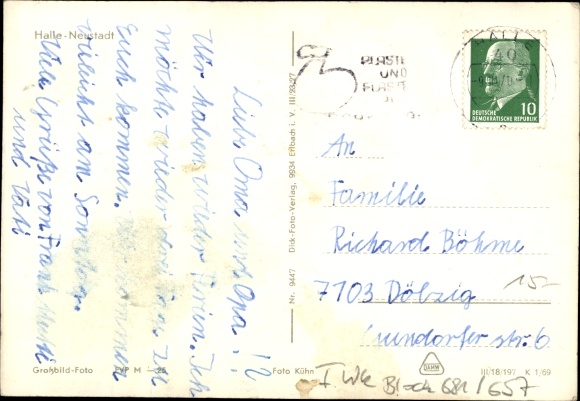 Halle-Neustadt
Liebe Oma und Opa!!
Wir haben wieder Ferien. Ich
möchte wieder drei Tage zu
Euch kommen. kommen
vielleicht am Sonntag.
Viele Grüße von Frank Mutti
und Vati
Großbild-Foto EVP M —,25 Foto Kühn
Nr. 9447 Dick-Foto-Verlag, 9934 Erlbach i. V. III/29/27
HALLE
40
PLASTE
UND
ELASTE
DEUTSCHE
DEMOKRATISCHE REPUBLIK
10
An
Familie
Richard Böhme
7103 Dölzig
str. 6
15,-
DAHW
III/18/197 K 1/69
I Wk Block 681/657